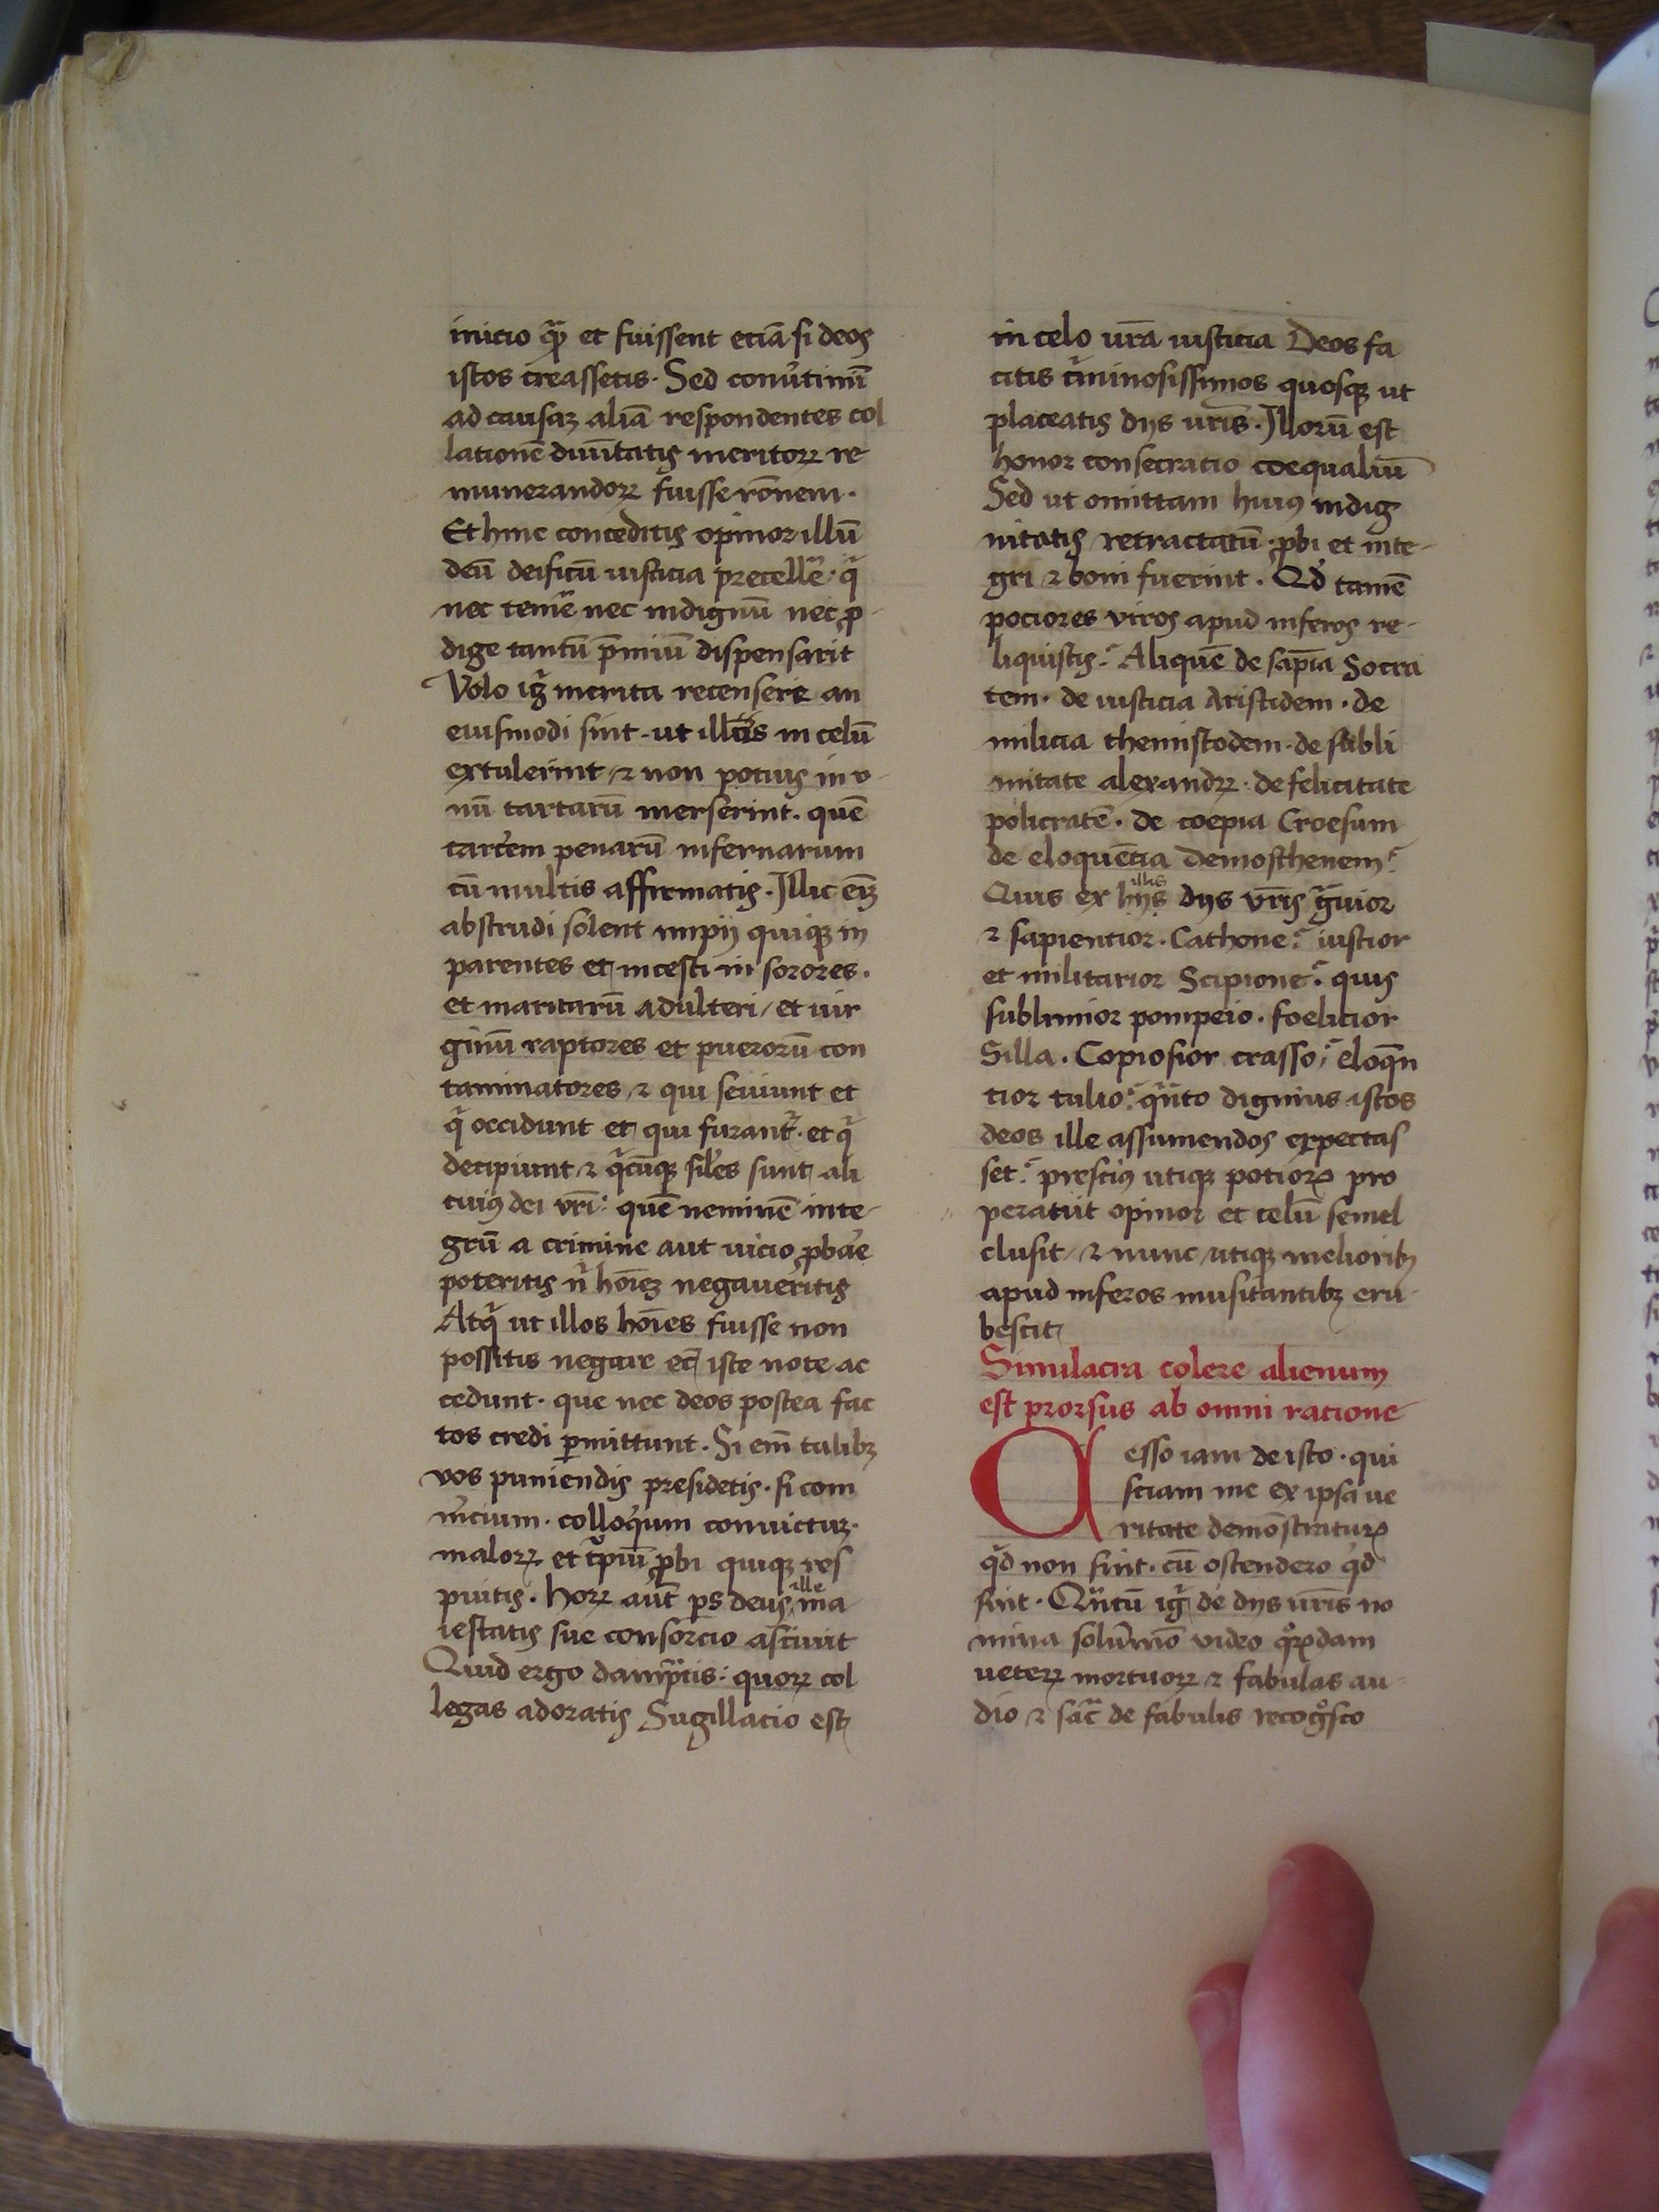 inicio quā et fuissent eciā si deos
istos creassetis. Sed conv̄timur̄
ad causaꝫ aliā respondentes col
lationē diuītatis meritoꝝ re
munerandoꝝ fuisse rōnem.
Et hinc conceditis opinor illū
deū deificū iusticia precellēr. qͥ
nec temēr nec indignū nec ꝓ
dige tantū p̄miū dispensarit
Volo igͥ merita recensere an
eiusmodi sint. ut illos in celū
extulerint ⁊ non potius in v
nū tartarū merserint. quē
carcēem penarū infernarum
cū multis affirmatis. Illic eīꝫ
abstrudi solent impij quiqꝫ in
parentes et incesti in sorores.
et maritarū adulteri / et uir
ginū raptores et puerorū con
taminatores / ⁊ qui seuiunt et
qͥ occidunt et qui furantͬ. et qͥ
decipiunt ⁊ qͥcūqꝫ siles sunt ali
cuiꝰ dei vrī: quē neminē inte
grū a crimine aut uicio ꝓbaē
poteritis nͥ hoīeꝫ negaueritis
Atqͥ ut illos hoīes fuisse non
possitis negare eċ iste note ac
cedunt. que nec deos postea fac
tos credi ꝑmittunt. Si em̄ talibꝫ
vos puniendis presidetis. si com
m̄cium. colloqͥum convictuꝫ.
maloꝝ et tͥpiū ꝓbi quiqꝫ res
puitis. hoꝝ aūt ꝑs deus ille ma
iestatis sue consorcio asciuit
Quid ergo dampͣtis: quoꝝ col
legas adoratis Sugillacio est
in celo urā iusticia Deos fa
citis cͥminosissimos quosqꝫ ut
placeatis dijs uris̄. Illorū est
honor consecratio coequaliū
Sed ut omittam huiꝰ indig
nitatis retractatū. ꝓbi et inte
gri ⁊ boni fuerint. Qd̓ tamē
pociores viros apud inferos re
liquistis? Aliquē de sapīa Socra
tem. de iusticia Aristidem. de
milicia themistodem. de subli
mitate alexandꝝ. de felicitate
policratē. de coepia Croesum
de eloquētia Demosthenem?
Quis ex hijs illis dijs vrīs gͣuior
⁊ sapientior. Cathone? iustior
et militarior Scipione? quis
sublimior pompeio. foelicior
Silla. Copiosior crasso? eloqn̄
tior tulio? qͣnto dignius istos
deos ille assumendos expectas
set? presciꝰ utiqꝫ potioꝝ pro
peratut opinor et celū semel
clusit / ⁊ nunc utiqꝫ melioribꝫ
apud inferos musitantibꝫ eru
bescit
Simulacra colere alienum
est prorsus ab omni racione
C esso iam de isto. qui
sciam me ex ipsa ue
ritate demōstraturꝝ
qͥd non sint. cū ostendero qͥd
sint. Qͣntū igͥ de dijs uris̄ no
mina solūmō video qͦrꝝdam
ueteꝝ mortuoꝝ ⁊ fabulas au
dio ⁊ sāc de fabulis recogͦsco